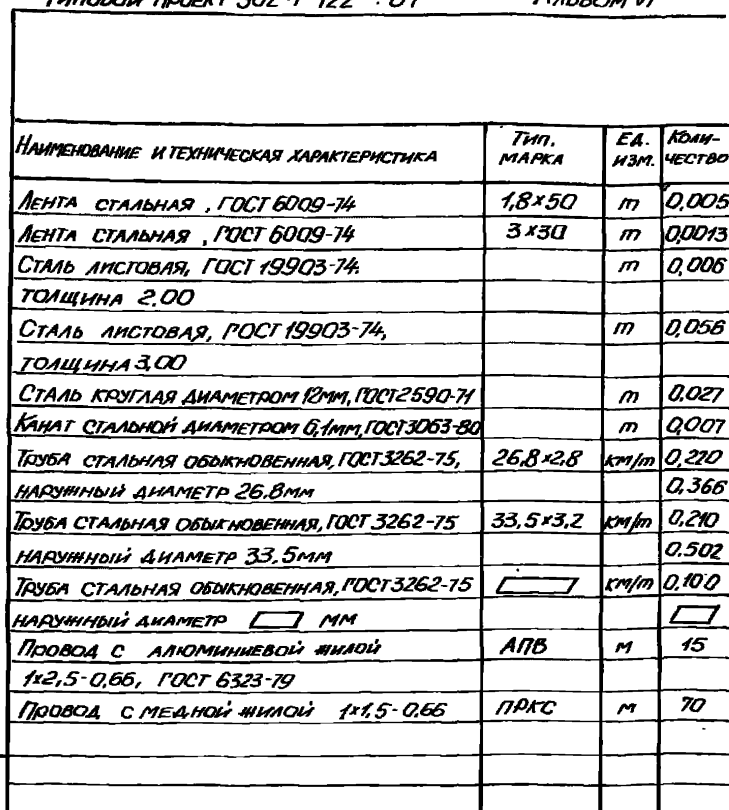 НАИМЕНОВАНИЕ И ТЕХНИЧЕСКАЯ ХАРАКТЕРИСТИКА ТИП, МАРКА ЕД. ИЗМ. КОЛИ-ЧЕСТВО
ЛЕНТА СТАЛЬНАЯ, ГОСТ 6009-74 1,8×50 т 0,005
ЛЕНТА СТАЛЬНАЯ, ГОСТ 6009-74 3×30 т 0,0013
СТАЛЬ ЛИСТОВАЯ, ГОСТ 19903-74, т 0,006
ТОЛЩИНА 2,00
СТАЛЬ ЛИСТОВАЯ, ГОСТ 19903-74, т 0,056
ТОЛЩИНА 3,00
СТАЛЬ КРУГЛАЯ ДИАМЕТРОМ 12мм, ГОСТ 2590-71 т 0,027
КАНАТ СТАЛЬНОЙ ДИАМЕТРОМ 6,1мм, ГОСТ 3063-80 т 0,007
ТРУБА СТАЛЬНАЯ ОБЫКНОВЕННАЯ, ГОСТ 3262-75, 26,8×2,8 км/т 0,220
НАРУЖНЫЙ ДИАМЕТР 26,8мм 0,366
ТРУБА СТАЛЬНАЯ ОБЫКНОВЕННАЯ, ГОСТ 3262-75 33,5×3,2 км/т 0,210
НАРУЖНЫЙ ДИАМЕТР 33,5мм 0,502
ТРУБА СТАЛЬНАЯ ОБЫКНОВЕННАЯ, ГОСТ 3262-75 км/т 0,100
НАРУЖНЫЙ ДИАМЕТР мм
ПРОВОД С АЛЮМИНИЕВОЙ ЖИЛОЙ АПВ м 15
1×2,5-0,66, ГОСТ 6323-79
ПРОВОД С МЕДНОЙ ЖИЛОЙ 1×1,5-0,66 ПРКС м 70